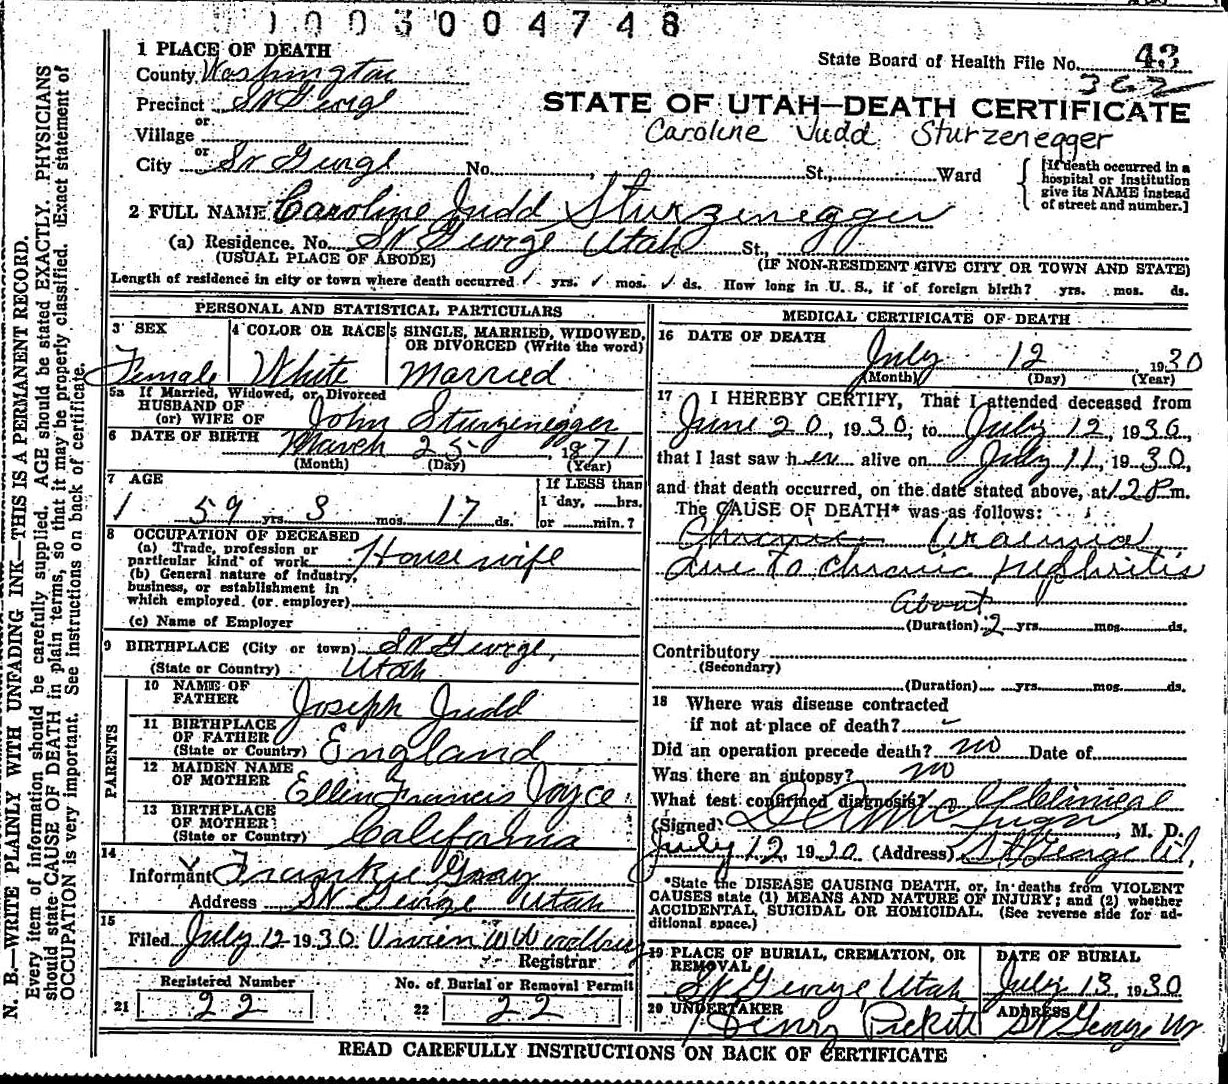 1003004748
1 PLACE OF DEATH
State Board of Health File No. 43
County Washington
362
Precinct St George
STATE OF UTAH—DEATH CERTIFICATE
or
Village
Caroline Judd Sturzenegger
or
City St George No. St., Ward
[If death occurred in a
hospital or institution
give its NAME instead
of street and number.]
2 FULL NAME Caroline Judd Sturzenegger
(a) Residence. No. St George Utah St.,
(USUAL PLACE OF ABODE) (IF NON-RESIDENT GIVE CITY OR TOWN AND STATE)
Length of residence in city or town where death occurred yrs. mos. ds. How long in U. S., if of foreign birth? yrs. mos. ds.
PERSONAL AND STATISTICAL PARTICULARS
3 SEX
Female
4 COLOR OR RACE
White
5 SINGLE, MARRIED, WIDOWED,
OR DIVORCED (Write the word)
Married
5a If Married, Widowed, or Divorced
HUSBAND OF
(or) WIFE OF John Sturzenegger
6 DATE OF BIRTH March 25, 1871
(Month) (Day) (Year)
7 AGE
59 yrs. 3 mos. 17 ds.
If LESS than
1 day, hrs.
or min.?
8 OCCUPATION OF DECEASED
(a) Trade, profession or
particular kind of work Housewife
(b) General nature of industry,
business, or establishment in
which employed (or employer)
(c) Name of Employer
9 BIRTHPLACE (City or town) St George,
(State or Country) Utah
PARENTS
10 NAME OF
FATHER Joseph Judd
11 BIRTHPLACE
OF FATHER
(State or Country) England
12 MAIDEN NAME
OF MOTHER Ellen Francis Joyce
13 BIRTHPLACE
OF MOTHER
(State or Country) California
14
Informant Frankie Gray
Address St George Utah
15
Filed July 12 1930
Registrar
Registered Number
21 22
No. of Burial or Removal Permit
22 22
MEDICAL CERTIFICATE OF DEATH
16 DATE OF DEATH
July 12 1930
(Month) (Day) (Year)
17 I HEREBY CERTIFY, That I attended deceased from
June 20, 1930, to July 12, 1930,
that I last saw her alive on July 11, 1930,
and that death occurred, on the date stated above, at 12 P m.
The CAUSE OF DEATH* was as follows:
Chronic Uraemia
due to chronic nephritis
About
(Duration) 2 yrs. mos. ds.
Contributory
(Secondary)
(Duration) yrs. mos. ds.
18 Where was disease contracted
if not at place of death?
Did an operation precede death? no Date of
Was there an autopsy? no
What test confirmed diagnosis? Clinical
(Signed) , M. D.
July 12, 1930 (Address) St George Ut.
*State the DISEASE CAUSING DEATH, or, in deaths from VIOLENT
CAUSES state (1) MEANS AND NATURE OF INJURY; and (2) whether
ACCIDENTAL, SUICIDAL OR HOMICIDAL. (See reverse side for ad-
ditional space.)
19 PLACE OF BURIAL, CREMATION, OR
REMOVAL
St George Utah
DATE OF BURIAL
July 13 1930
20 UNDERTAKER
Henry Pickett
ADDRESS
St George Ut
READ CAREFULLY INSTRUCTIONS ON BACK OF CERTIFICATE
N. B.—WRITE PLAINLY WITH UNFADING INK—THIS IS A PERMANENT RECORD.
Every item of information should be carefully supplied. AGE should be stated EXACTLY. PHYSICIANS
should state CAUSE OF DEATH in plain terms, so that it may be properly classified. Exact statement of
OCCUPATION is very important. See instructions on back of certificate.